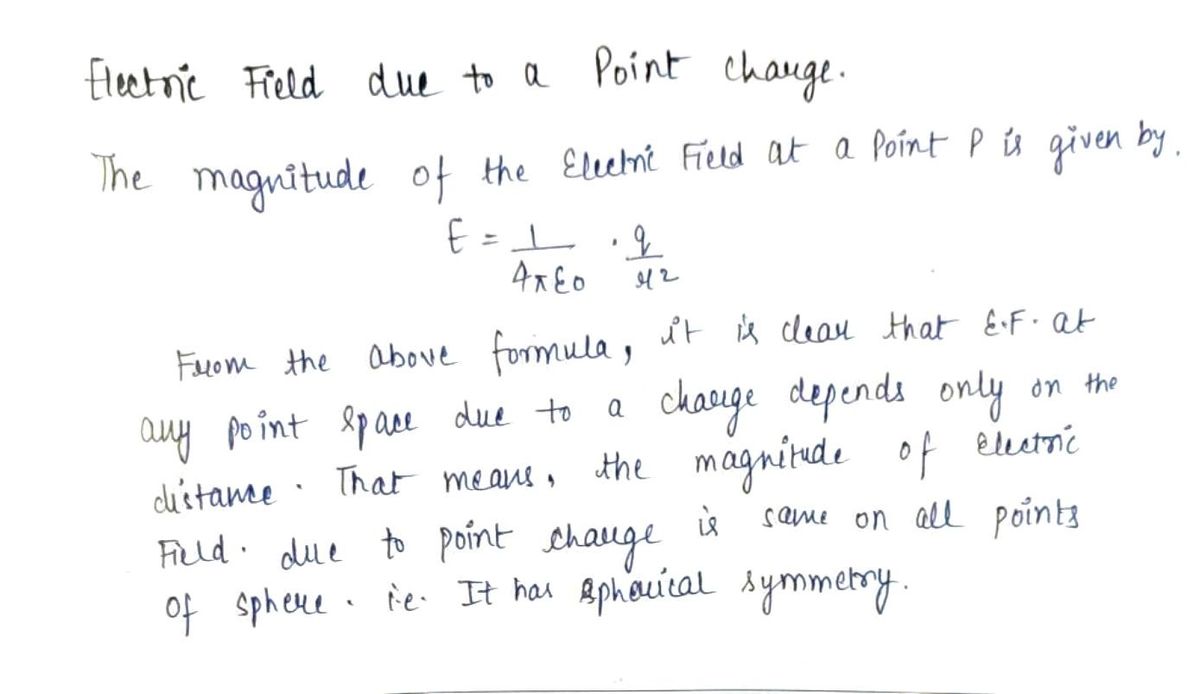 Electric Field due to a Point charge.
The magnitude of the Electric Field at a Point P is given by.
E = 1/4πε0 · q/r2
From the above formula, it is clear that E.F. at
any point space due to a charge depends only on the
distance. That means, the magnitude of electric
Field. due to point charge is same on all points
of sphere. i.e. It has spherical symmetry.